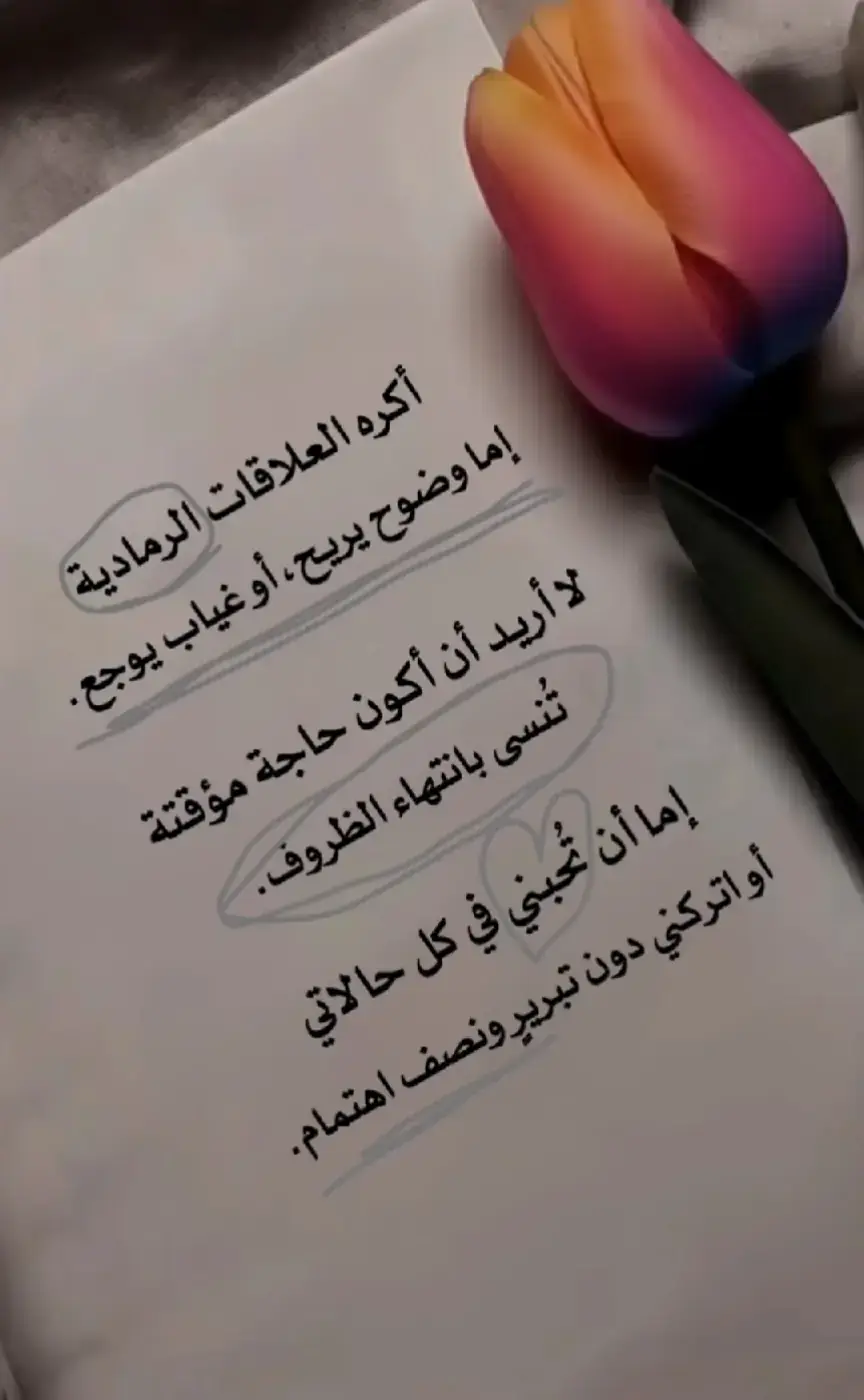 أكره العلاقات الرمادية
إما وضوح يريح، أو غياب يوجع.
لا أريد أن أكون حاجة مؤقتة
تُنسى بانتهاء الظروف.
إما أن تُحبني في كل حالاتي
أو اتركني دون تبريرٍ ونصف اهتمام.